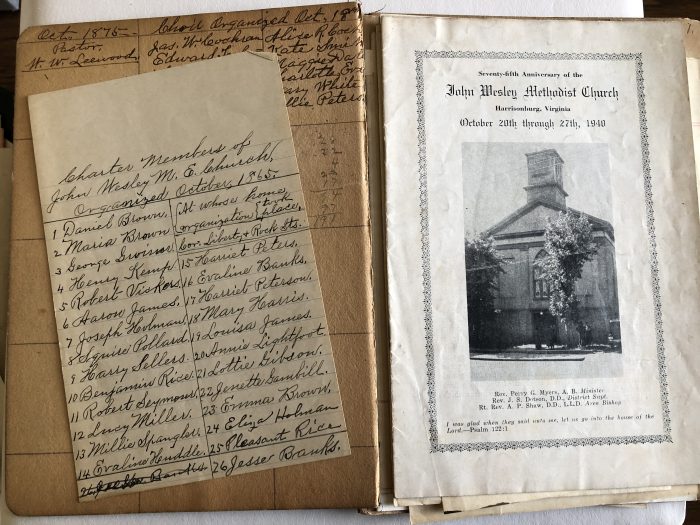 Oct. 1875-
Pastor.
W. W. Leewood
Choir Organized Oct. 18
Jas. W. Cochran Alice R. Coc
Edward
Kate
Maggie
Charlotte
Mary White
Peterson
Charter Members of
John Wesley M. E. Church,
Organized October, 1865.
1 Daniel Brown, (At whose home,
2 Maria Brown organization took place,
3 George Cor. Liberty & Rock Sts.
4 Henry Kemp 15 Harriet Peters,
5 Robert Vickers 16 Evaline Banks,
6 Aaron James, 17 Harriet Peterson,
7 Joseph Holman, 18 Mary Harris.
8 Squire Pollard 19 Louisa James.
9 Harry Sellers. 20 Annie Lightfoot.
10 Benjamin Rice. 21 Lottie Gibson.
11 Robert Seymour. 22 Jenette Gambill.
12 Lucy Miller. 23 Emma Brown.
13 Millie Spangler. 24 Eliza Holman
14 Evaline Huddle. 25 Pleasant Rice
26 Jesser Banks.
Seventy-fifth Anniversary of the
John Wesley Methodist Church
Harrisonburg, Virginia
October 20th through 27th, 1940
Rev. Perry G. Myers, A. B. Minister
Rev. J. S. Dotson, D.D., District Supt.
Rt. Rev. A. P. Shaw, D.D., L.L.D. Area Bishop
I was glad when they said unto me, let us go into the house of the
Lord.—Psalm 122:1